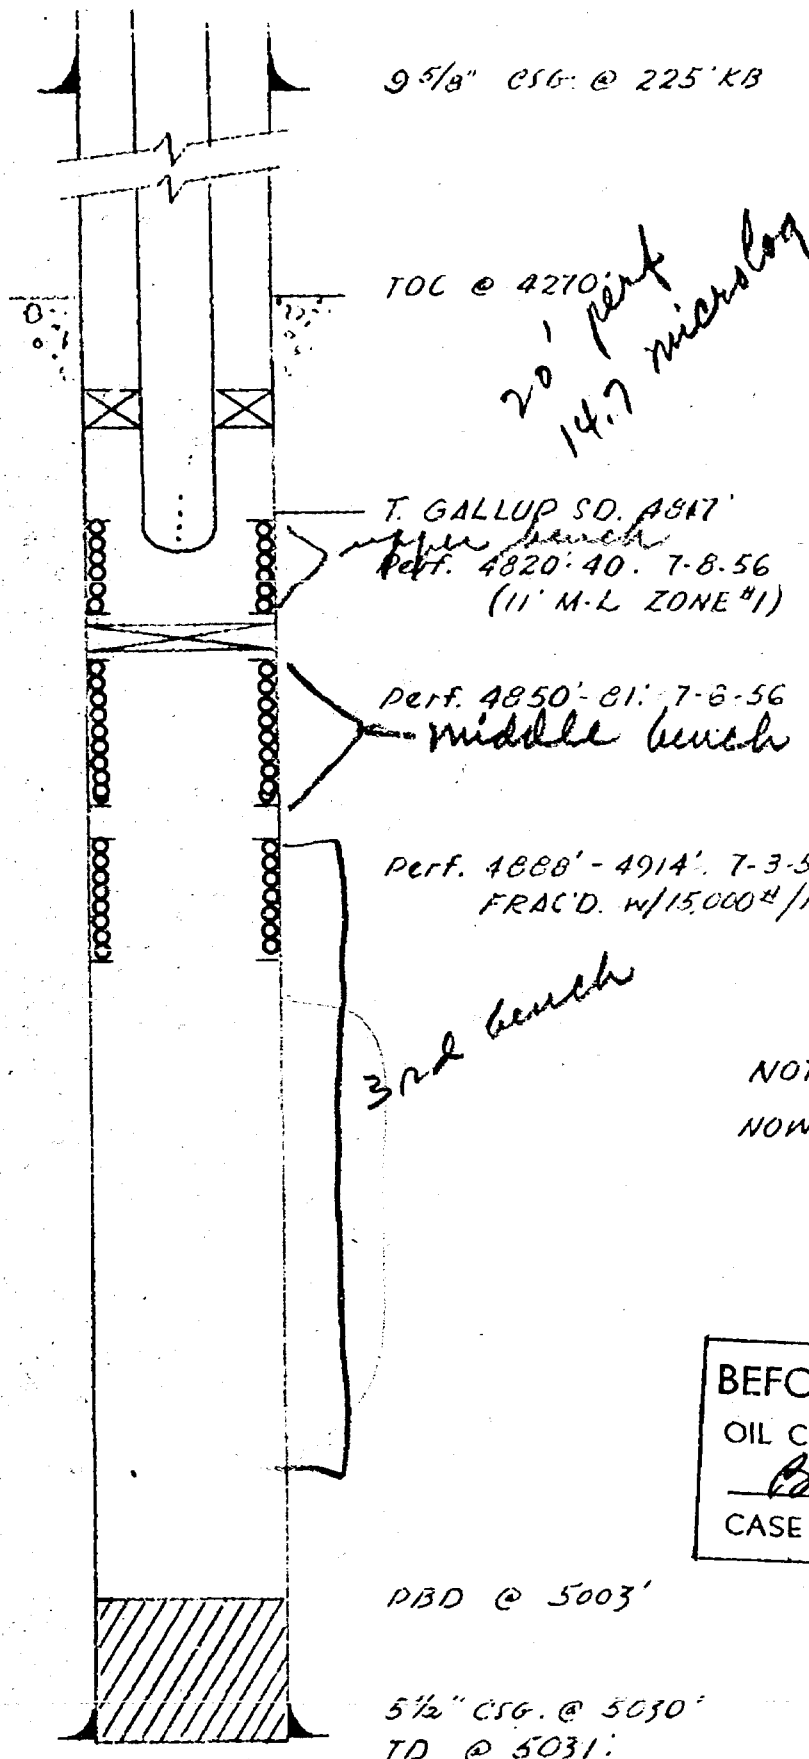 9 5/8" CSG. @ 225' KB
TOC @ 4270'
20' perf
14.7 microlog
T. GALLUP SD. 4817'
upper bench
Perf. 4820'-40'. 7-8-56
(11' M-L ZONE #1)
Perf. 4850'-81'. 7-6-56
middle bench
Perf. 4888'-4914'. 7-3-5
FRAC'D. W/15,000#/1
3rd bench
NOT
NOW
BEFO
OIL C
CASE
PBD @ 5003'
5 1/2" CSG. @ 5030'
TD @ 5031'